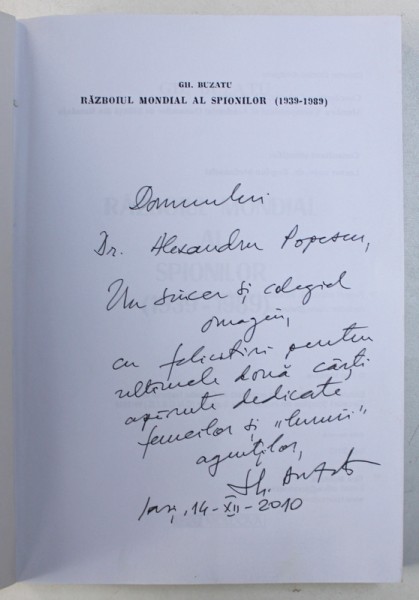 GH. BUZATU
RĂZBOIUL MONDIAL AL SPIONILOR (1939-1989)
Domnului
Dr. Alexandru Popescu,
Un sincer și colegial
omagiu,
cu felicitări pentru
ultimele două cărți
apărute dedicate
femeilor și "lumii"
agenților,
Gh. Buzatu
Iași, 14-XII-2010